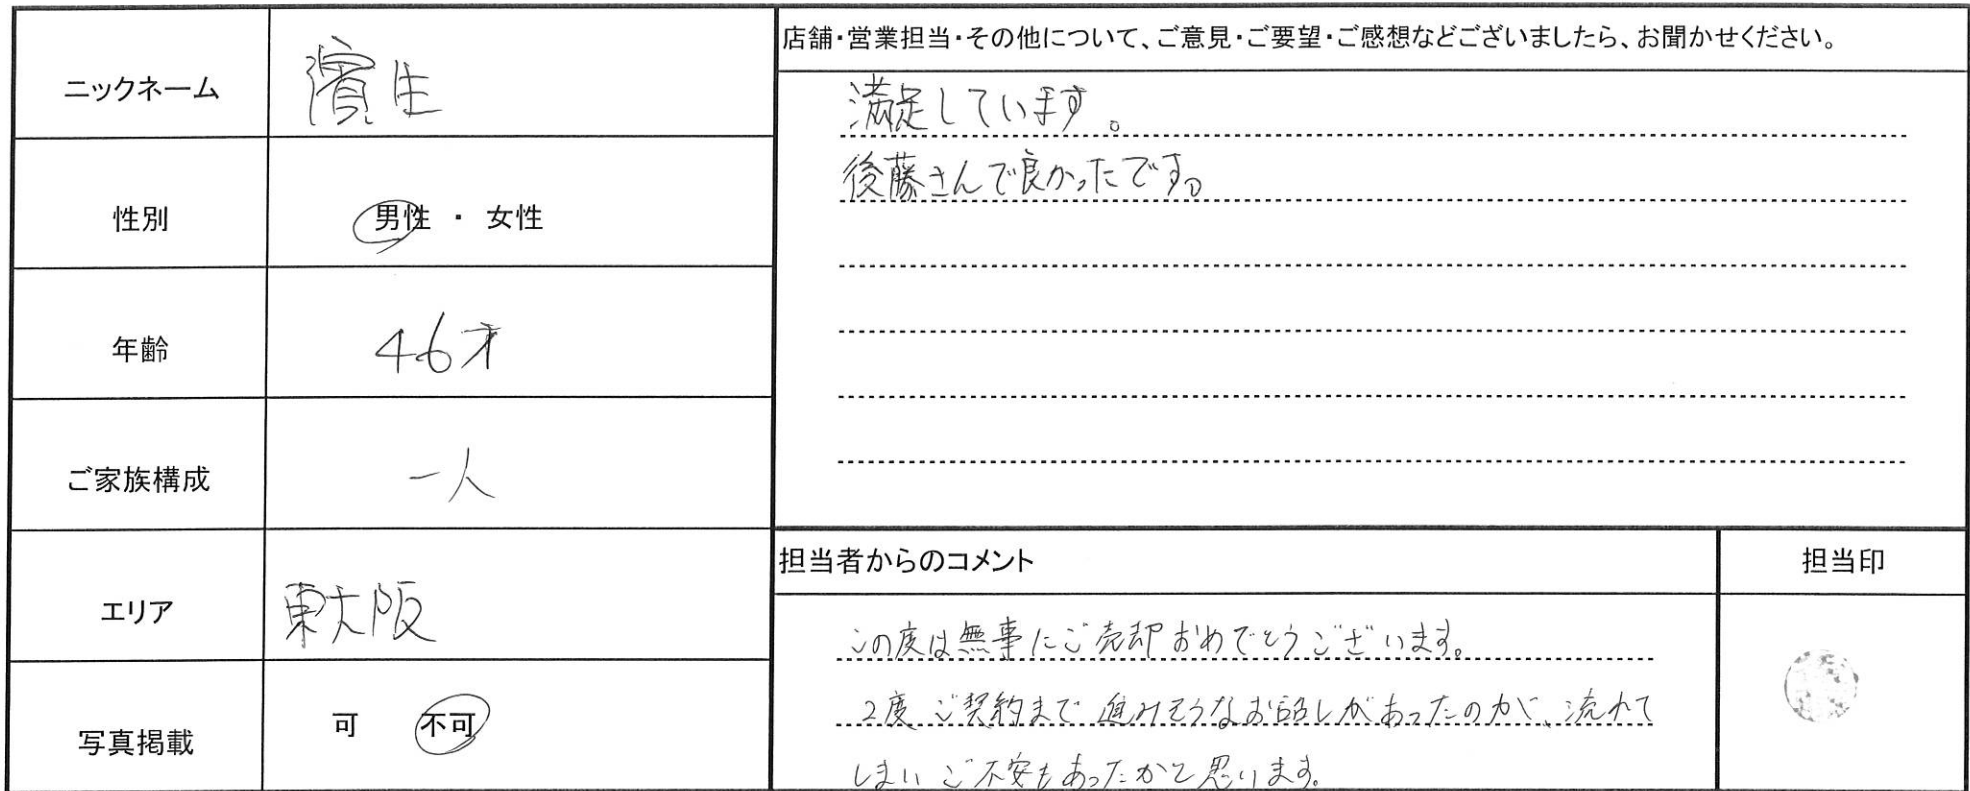 ニックネーム
濱生
性別
男性 ・ 女性
年齢
46才
ご家族構成
一人
エリア
東大阪
写真掲載
可 不可
店舗・営業担当・その他について、ご意見・ご要望・ご感想などございましたら、お聞かせください。
満足しています。
後藤さんで良かったです。
担当者からのコメント
この度は無事にご売却おめでとうございます。
2度、ご契約まで進みそうなお話しがあったのが、流れて
しまいご不安もあったかと思います。
担当印